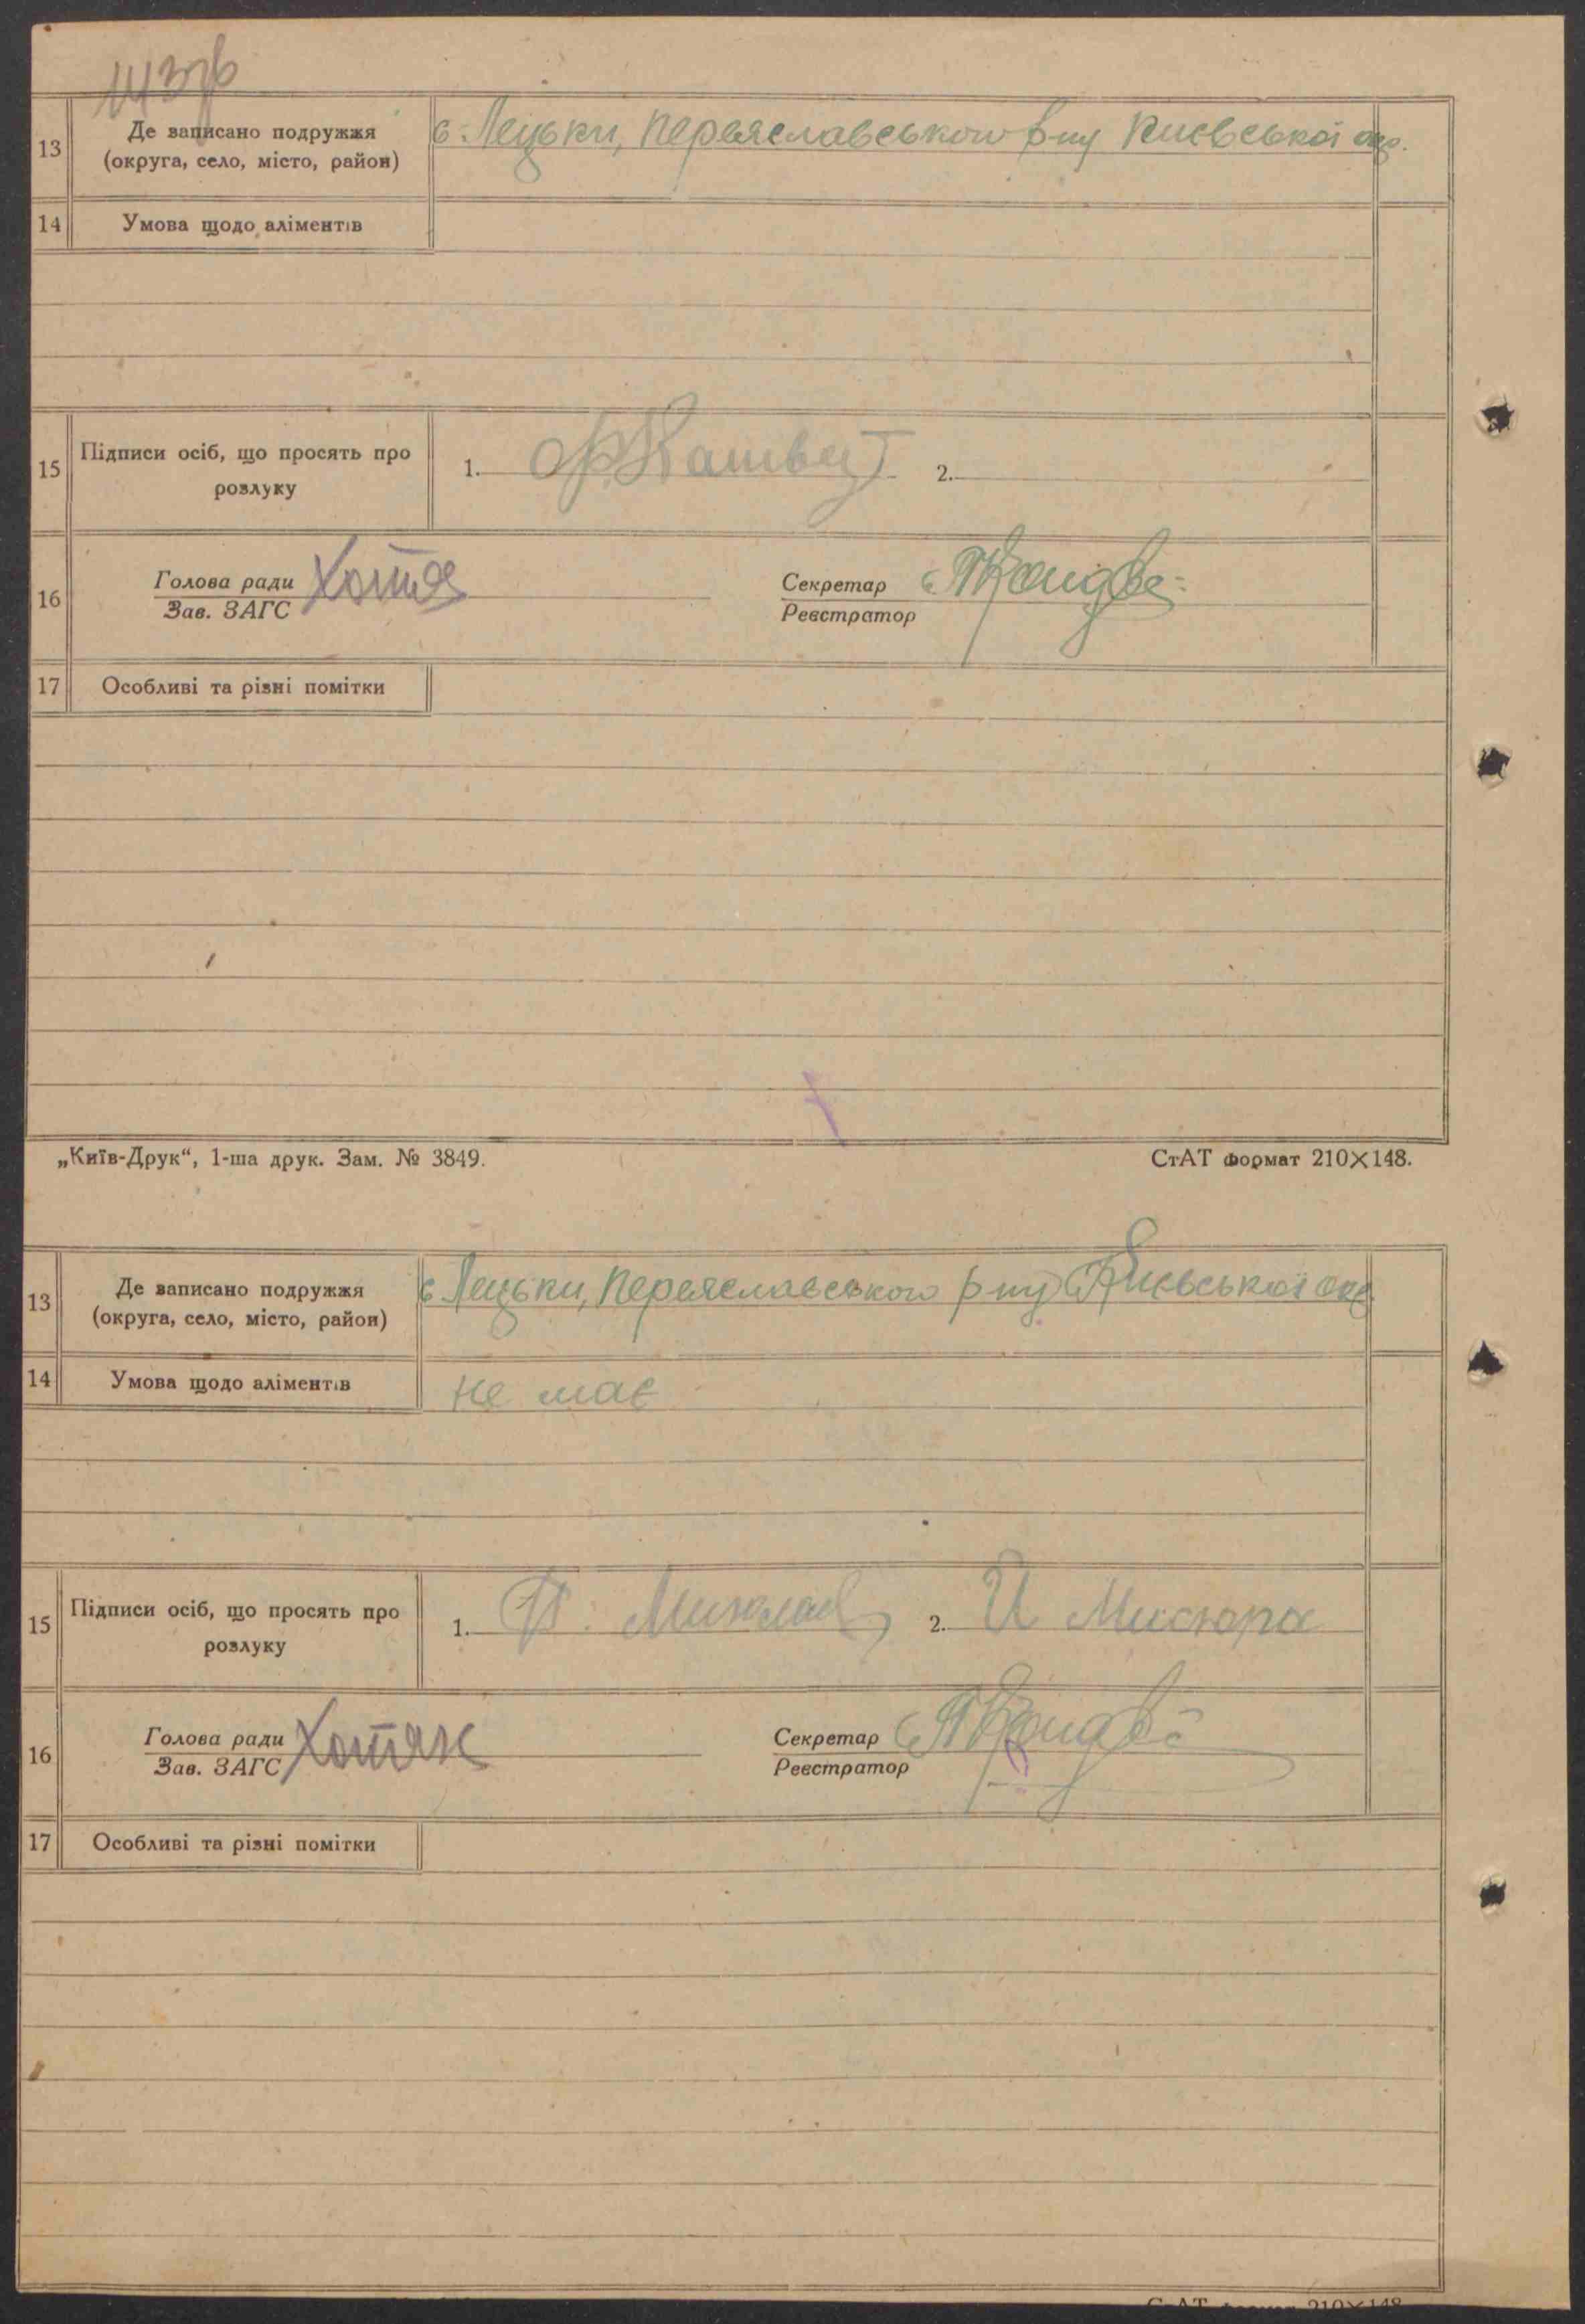 13 Де записано подружжя
(округа, село, місто, район)
с. Лецьки, Переяславського р-ну Києвської окр.
14 Умова щодо аліментів
15 Підписи осіб, що просять про
розлуку
1. 2.
16 Голова ради
Зав. ЗАГС
Секретар
Реєстратор
17 Особливі та різні помітки
„Київ-Друк“, 1-ша друк. Зам. № 3849.
СтАТ формат 210×148.
13 Де записано подружжя
(округа, село, місто, район)
с Лецьки, Переяславського р-ну Києвської окр
14 Умова щодо аліментів
не має
15 Підписи осіб, що просять про
розлуку
1. 2. И Мисюра
16 Голова ради Хотяк
Зав. ЗАГС
Секретар
Реєстратор
17 Особливі та різні помітки